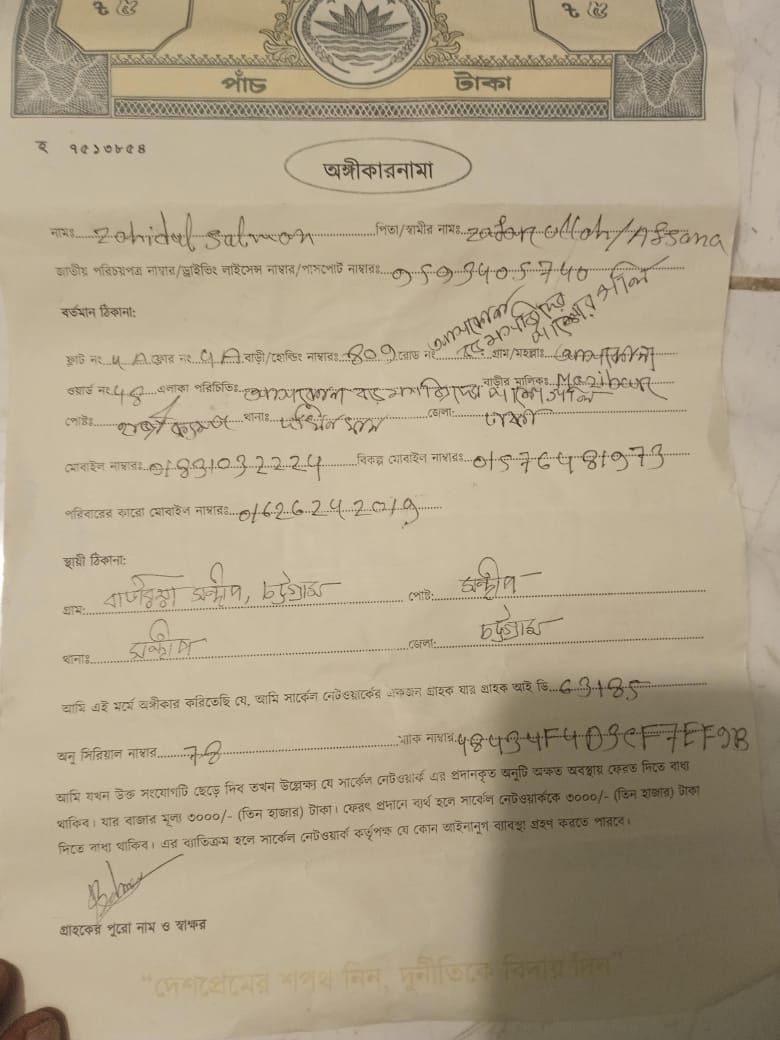 পাঁচ টাকা
অঙ্গীকারনামা
নামঃ Zahidul Salmon পিতা/স্বামীর নামঃ Zafar ullah/Afsana
জাতীয় পরিচয়পত্র নাম্বার/ড্রাইভিং লাইসেন্স নাম্বার/পাসপোর্ট নাম্বারঃ
বর্তমান ঠিকানা:
ফ্লাট নং ফ্লোর নং বাড়ী/হোল্ডিং নাম্বারঃ 809 রোড নং গ্রাম/মহল্লাঃ
ওয়ার্ড নং 48 এলাকা পরিচিতিঃ বাড়ীর মালিকঃ Mozibour
পোষ্টঃ থানাঃ দক্ষিনখান জেলা: ঢাকা
মোবাইল নাম্বারঃ 01831032224 বিকল্প মোবাইল নাম্বারঃ
পরিবারের কারো মোবাইল নাম্বারঃ
স্থায়ী ঠিকানা:
গ্রাম: সন্দ্বীপ, চট্টগ্রাম পোষ্ট: সন্দ্বীপ
থানাঃ সন্দ্বীপ জেলা: চট্টগ্রাম
আমি এই মর্মে অঙ্গীকার করিতেছি যে, আমি সার্কেল নেটওয়ার্কের একজন গ্রাহক যার গ্রাহক আই ডি 63185
অনু সিরিয়াল নাম্বার 78 ম্যাক নাম্বার
আমি যখন উক্ত সংযোগটি ছেড়ে দিব তখন উল্লেক্ষ্য যে সার্কেল নেটওয়ার্ক এর প্রদানকৃত অনুটি অক্ষত অবস্থায় ফেরত দিতে বাধ্য
থাকিব। যার বাজার মূল্য ৩০০০/- (তিন হাজার) টাকা। ফেরৎ প্রদানে ব্যর্থ হলে সার্কেল নেটওয়ার্ককে ৩০০০/- (তিন হাজার) টাকা
দিতে বাধ্য থাকিব। এর ব্যতিক্রম হলে সার্কেল নেটওয়ার্ক কর্তৃপক্ষ যে কোন আইনানুগ ব্যবস্থা গ্রহণ করতে পারবে।
গ্রাহকের পুরো নাম ও স্বাক্ষর
"দেশপ্রেমের শপথ নিন, দুর্নীতিকে বিদায় দিন"